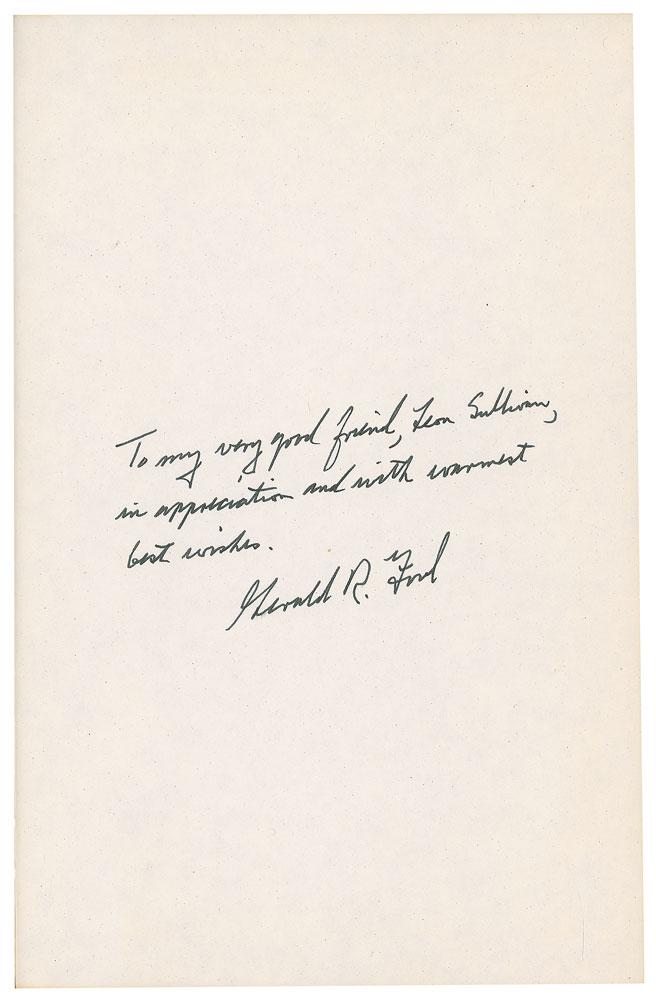 To my very good friend, Leon Sullivan,
in appreciation and with warmest
best wishes.
Gerald R. Ford